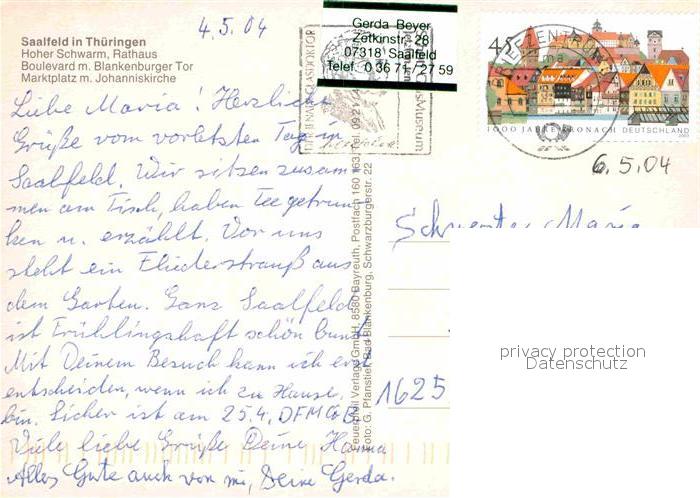 4.5.04
Gerda Beyer
Zetkinstr. 28
07318 Saalfeld
Telef. 0 36 71 / 27 59
45
1000 JAHRE KRONACH DEUTSCHLAND
6.5.04
Saalfeld in Thüringen
Hoher Schwarm, Rathaus
Boulevard m. Blankenburger Tor
Marktplatz m. Johanniskirche
Liebe Maria! Herzliche
Grüße vom vorletzten Tag in
Saalfeld. Wir sitzen zusam-
men am Tisch, haben Tee getrun-
ken u. erzählt. Vor uns
steht ein Fliederstrauß aus
dem Garten. Ganz Saalfeld
ist frühlingshaft schön bunt
Mit Deinem Besuch kann ich erst
entscheiden, wenn ich zu Hause
bin. Sicher ist am 25.4.
Viele liebe Grüße Deine Hanna
Alles Gute auch von mir, Deine Gerda.
Verlag GmbH, 8580 Bayreuth, Postfach 160 163, Tel. 09 21 /
Foto: G. Pfanstiel, Bad Blankenburg, Schwarzburgerstr. 22
Schwester Maria
1625
privacy protection
Datenschutz